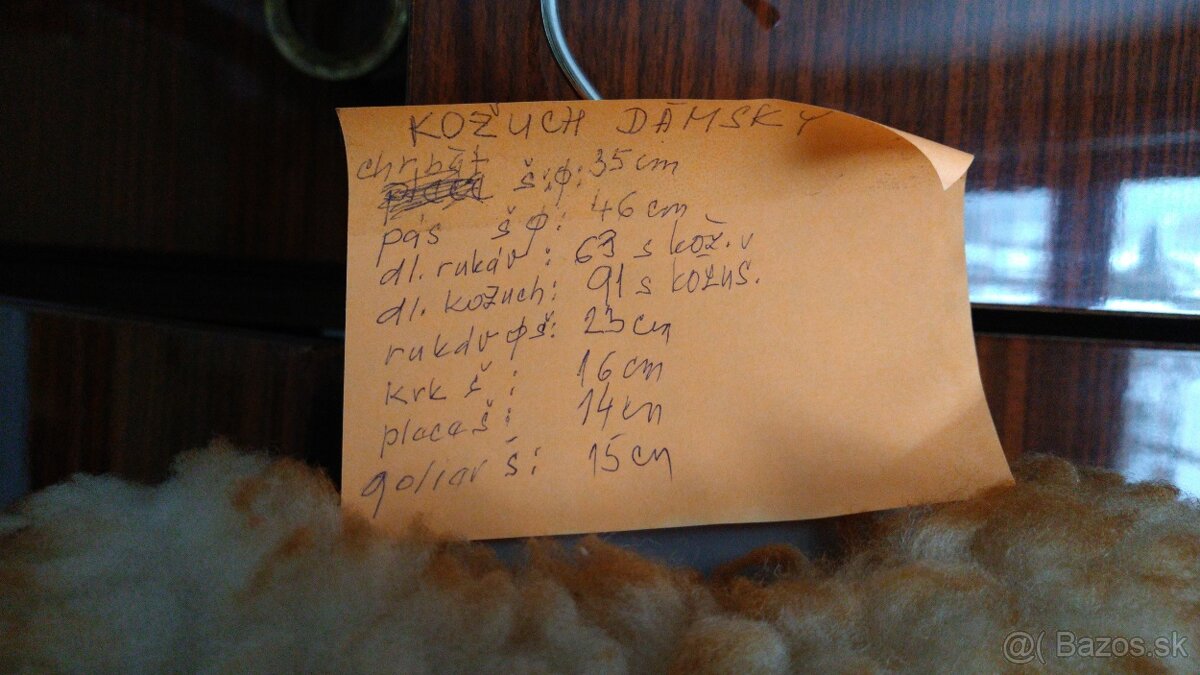 KOŽUCH DÁMSKY
chrbát š:ϕ: 35 cm
pás š ϕ: 46 cm
dl. rukáv: 63 s kož. v
dl. kožuch: 91 s kožuš.
rukáv ϕ š: 23 cm
krk š: 16 cm
placa š: 14 cm
goliar š: 15 cm
@( Bazos.sk